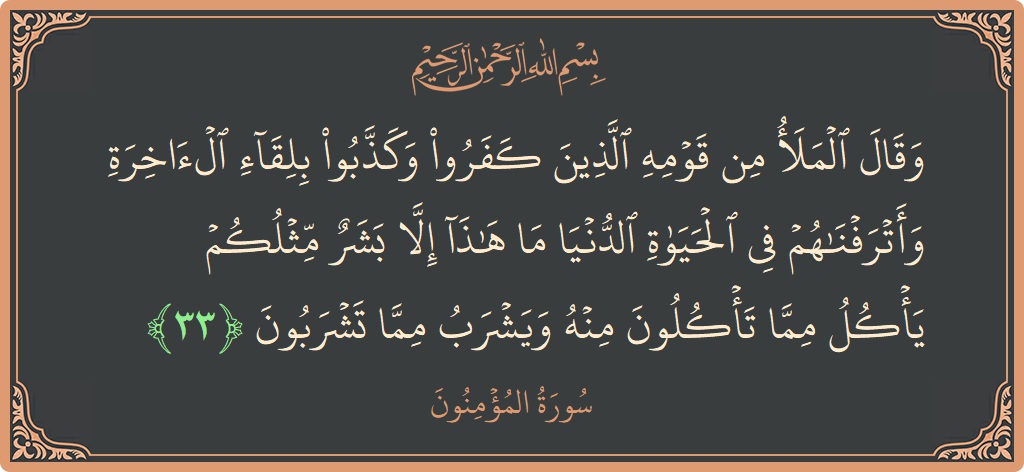 بِسْمِ اللَّهِ الرَّحْمَٰنِ الرَّحِيمِ
وَقَالَ ٱلْمَلَأُ مِن قَوْمِهِ ٱلَّذِينَ كَفَرُوا۟ وَكَذَّبُوا۟ بِلِقَآءِ ٱلْءَاخِرَةِ
وَأَتْرَفْنَـٰهُمْ فِى ٱلْحَيَوٰةِ ٱلدُّنْيَا مَا هَـٰذَآ إِلَّا بَشَرٌ مِّثْلُكُمْ
يَأْكُلُ مِمَّا تَأْكُلُونَ مِنْهُ وَيَشْرَبُ مِمَّا تَشْرَبُونَ ﴿٣٣﴾
سُورَةُ المُؤْمِنُونَ